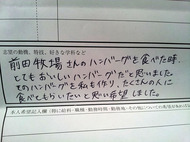 志望の動機、特技、好きな学科など
前田牧場さんのハンバーグを食べた時、
とてもおいしいハンバーグだと思いました。
そのハンバーグを私も作り、たくさんの人に
食べてもらいたいと思い希望しました。
本人希望記入欄（特に給料・職種・勤務時間・勤務地・その他についての希望